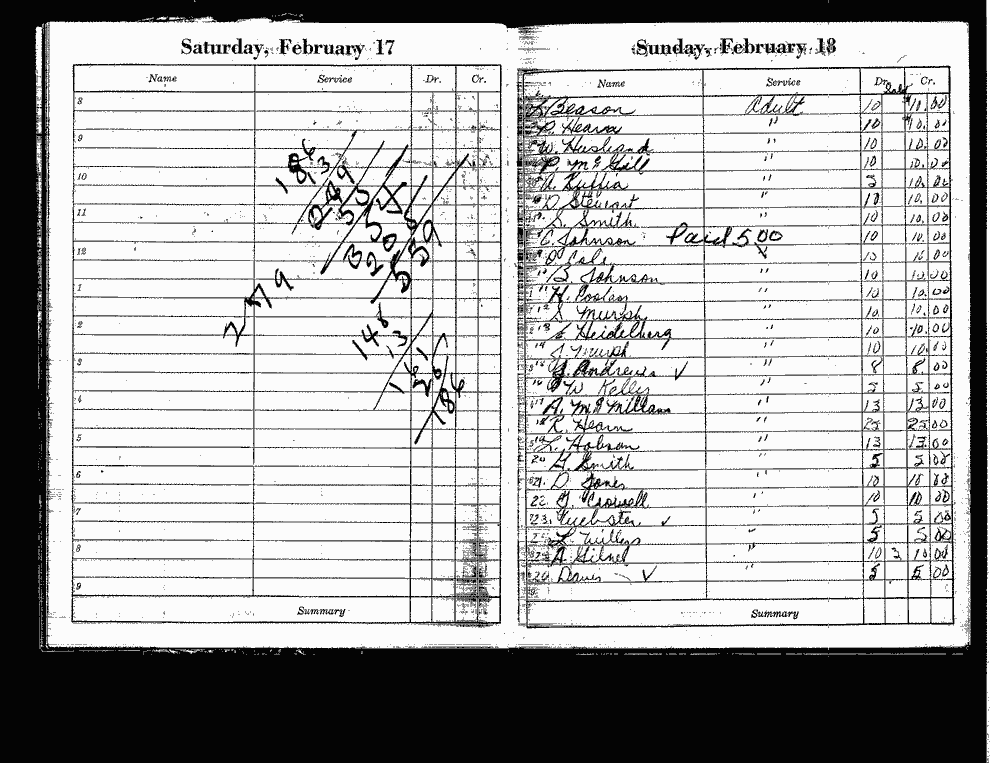 Saturday, February 17
Name Service Dr. Cr.
8
9
10
11
12
1
2
3
4
5
6
7
8
9
186
13
249
55
354
205
559
279
148
13
161
25
186
Summary
Sunday, February 18
Name Service Dr. Cr.
L. Beason Adult 10 $10.00
P. Hearn " 10 $10.00
W. Husband " 10 10.00
P. McGill " 10 10.00
A. Ruffin " 5 10.00
D. Stewart " 10 10.00
S. Smith " 10 10.00
C. Johnson Paid 5.00 10 10.00
O. Cole " 10 10.00
B. Johnson " 10 10.00
11 H. " 10 10.00
12 S. Murph " 10 10.00
13 E. Heidelberg " 10 10.00
14 J. Murph " 10 10.00
15 G. Andrews ✓ " 8 8.00
16 W Kelly " 5 5.00
17 A. McMillan " 13 13.00
18 R. Hearn " 25 25.00
19 L. Hobson " 13 13.00
20 G. Smith " 5 5.00
21. D. Jones " 10 10.00
22. G. " 10 10.00
23. Webster ✓ " 5 5.00
24 L. Willys " 5 5.00
25 A. " 10 3 10.00
26 Davis ✓ " 5 5.00
Summary